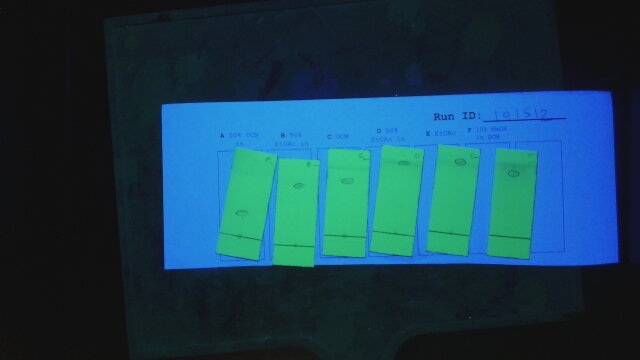 Run ID: 101512
A 50% DCM in
B 50% EtOAc in
C DCM
D 50% EtOAc in
E EtOAc
F 10% MeOH in DCM